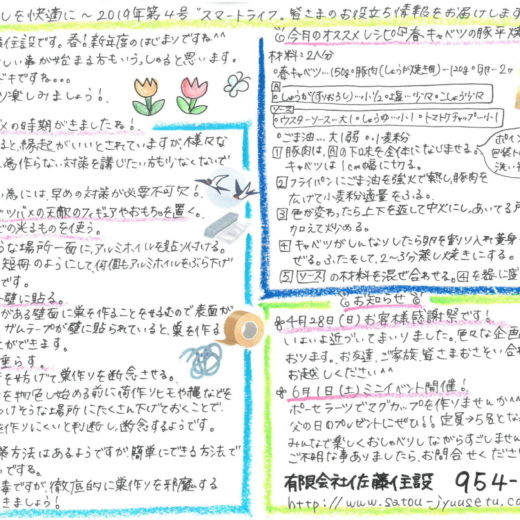 しを快適に～2019年第4号"スマートライフ"皆さまのお役立ち情報をお届けします
住設です。春!新年度のはじまりですね^^
しい事が始まる方もいらっしゃると思います。
ドキですね...
楽しみましょう!
メの時期がきましたね!
ると、縁起がいいとされていますが、様々な
為作らない対策を講じたい方も少なくないで
い為には、早めの対策が必要不可欠。
ツバメの天敵のフィギアやおもちゃを置く。
どの光るものを使う。
うな場所一面に、アルミホイルを貼り付ける。
短冊のようにして、何個もアルミホイルをぶら下げ
です。
壁に貼る。
がある壁面に巣を作ることをせるむので表面が
ガムテープが壁に貼られていると、巣を作る
とができます。
垂らす。
を妨げて巣作りを断念させる。
を物色し始める前に荷作りヒモや縄などを
つけそうな場所にたくさん下げておくことで、
を作りにくいと判断し、断念するようです。
策方法はあるようですが簡単にできる方法で
です。
毒ですが、徹底的に巣作りを邪魔する
きましょう!
今月のオススメレシピ 春キャベツの豚平焼
材料:2人分
春キャベツ…150g 豚肉(しょうが焼き用)…120g 卵…2ヶ
しょうが(すりおろし)…小1/2 塩…少々 こしょう少々
ソース
ウスターソース…大1 しょうゆ…小1 トマトケチャップ…小1
ごま油…大1弱 小麦粉
1 豚肉は、の下味を全体になじませる。
キャベツは1cm幅に切る。
2 フライパンにごま油を強火で熱し豚肉を
広げて小麦粉適量をふる。
3 色が変わったら上下を返して中火にし、あいてる所
加えて炒める。
4 キャベツがしんなりしたら卵を割り入れ黄身
ぜる。ふたをして、2～3分蒸し焼きにする。
5 ソースの材料を混ぜ合わせる。4を器に
ポイ
包装
洗い
お知らせ
4月28日(日)お客様感謝祭です!
いよいよ近づいてまいりました。色々な企画
おります。お友達、ご家族皆さまおさそい合
お越しください^^
6月1日(土)ミニイベント開催!
ポーセラーツでマグカップを作りませんか^^
父の日のプレゼントにぜひ!!定員→5名とな
みんなで楽しくおしゃべりしながらすごしません
ご不明な事ありましたら、お問合せください
有限会社佐藤住設 954-
http://www.satou-jyuusetu.co